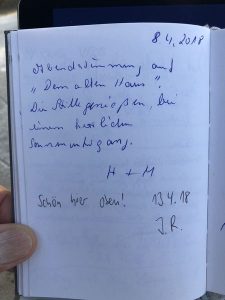 8.4.2018
Abendstimmung auf
"Dem alten Haus".
Die Stille genießen, bei
einem herrlichen
Sonnenuntergang.
H + M
Schön hier oben! 13.4.18
J.R.